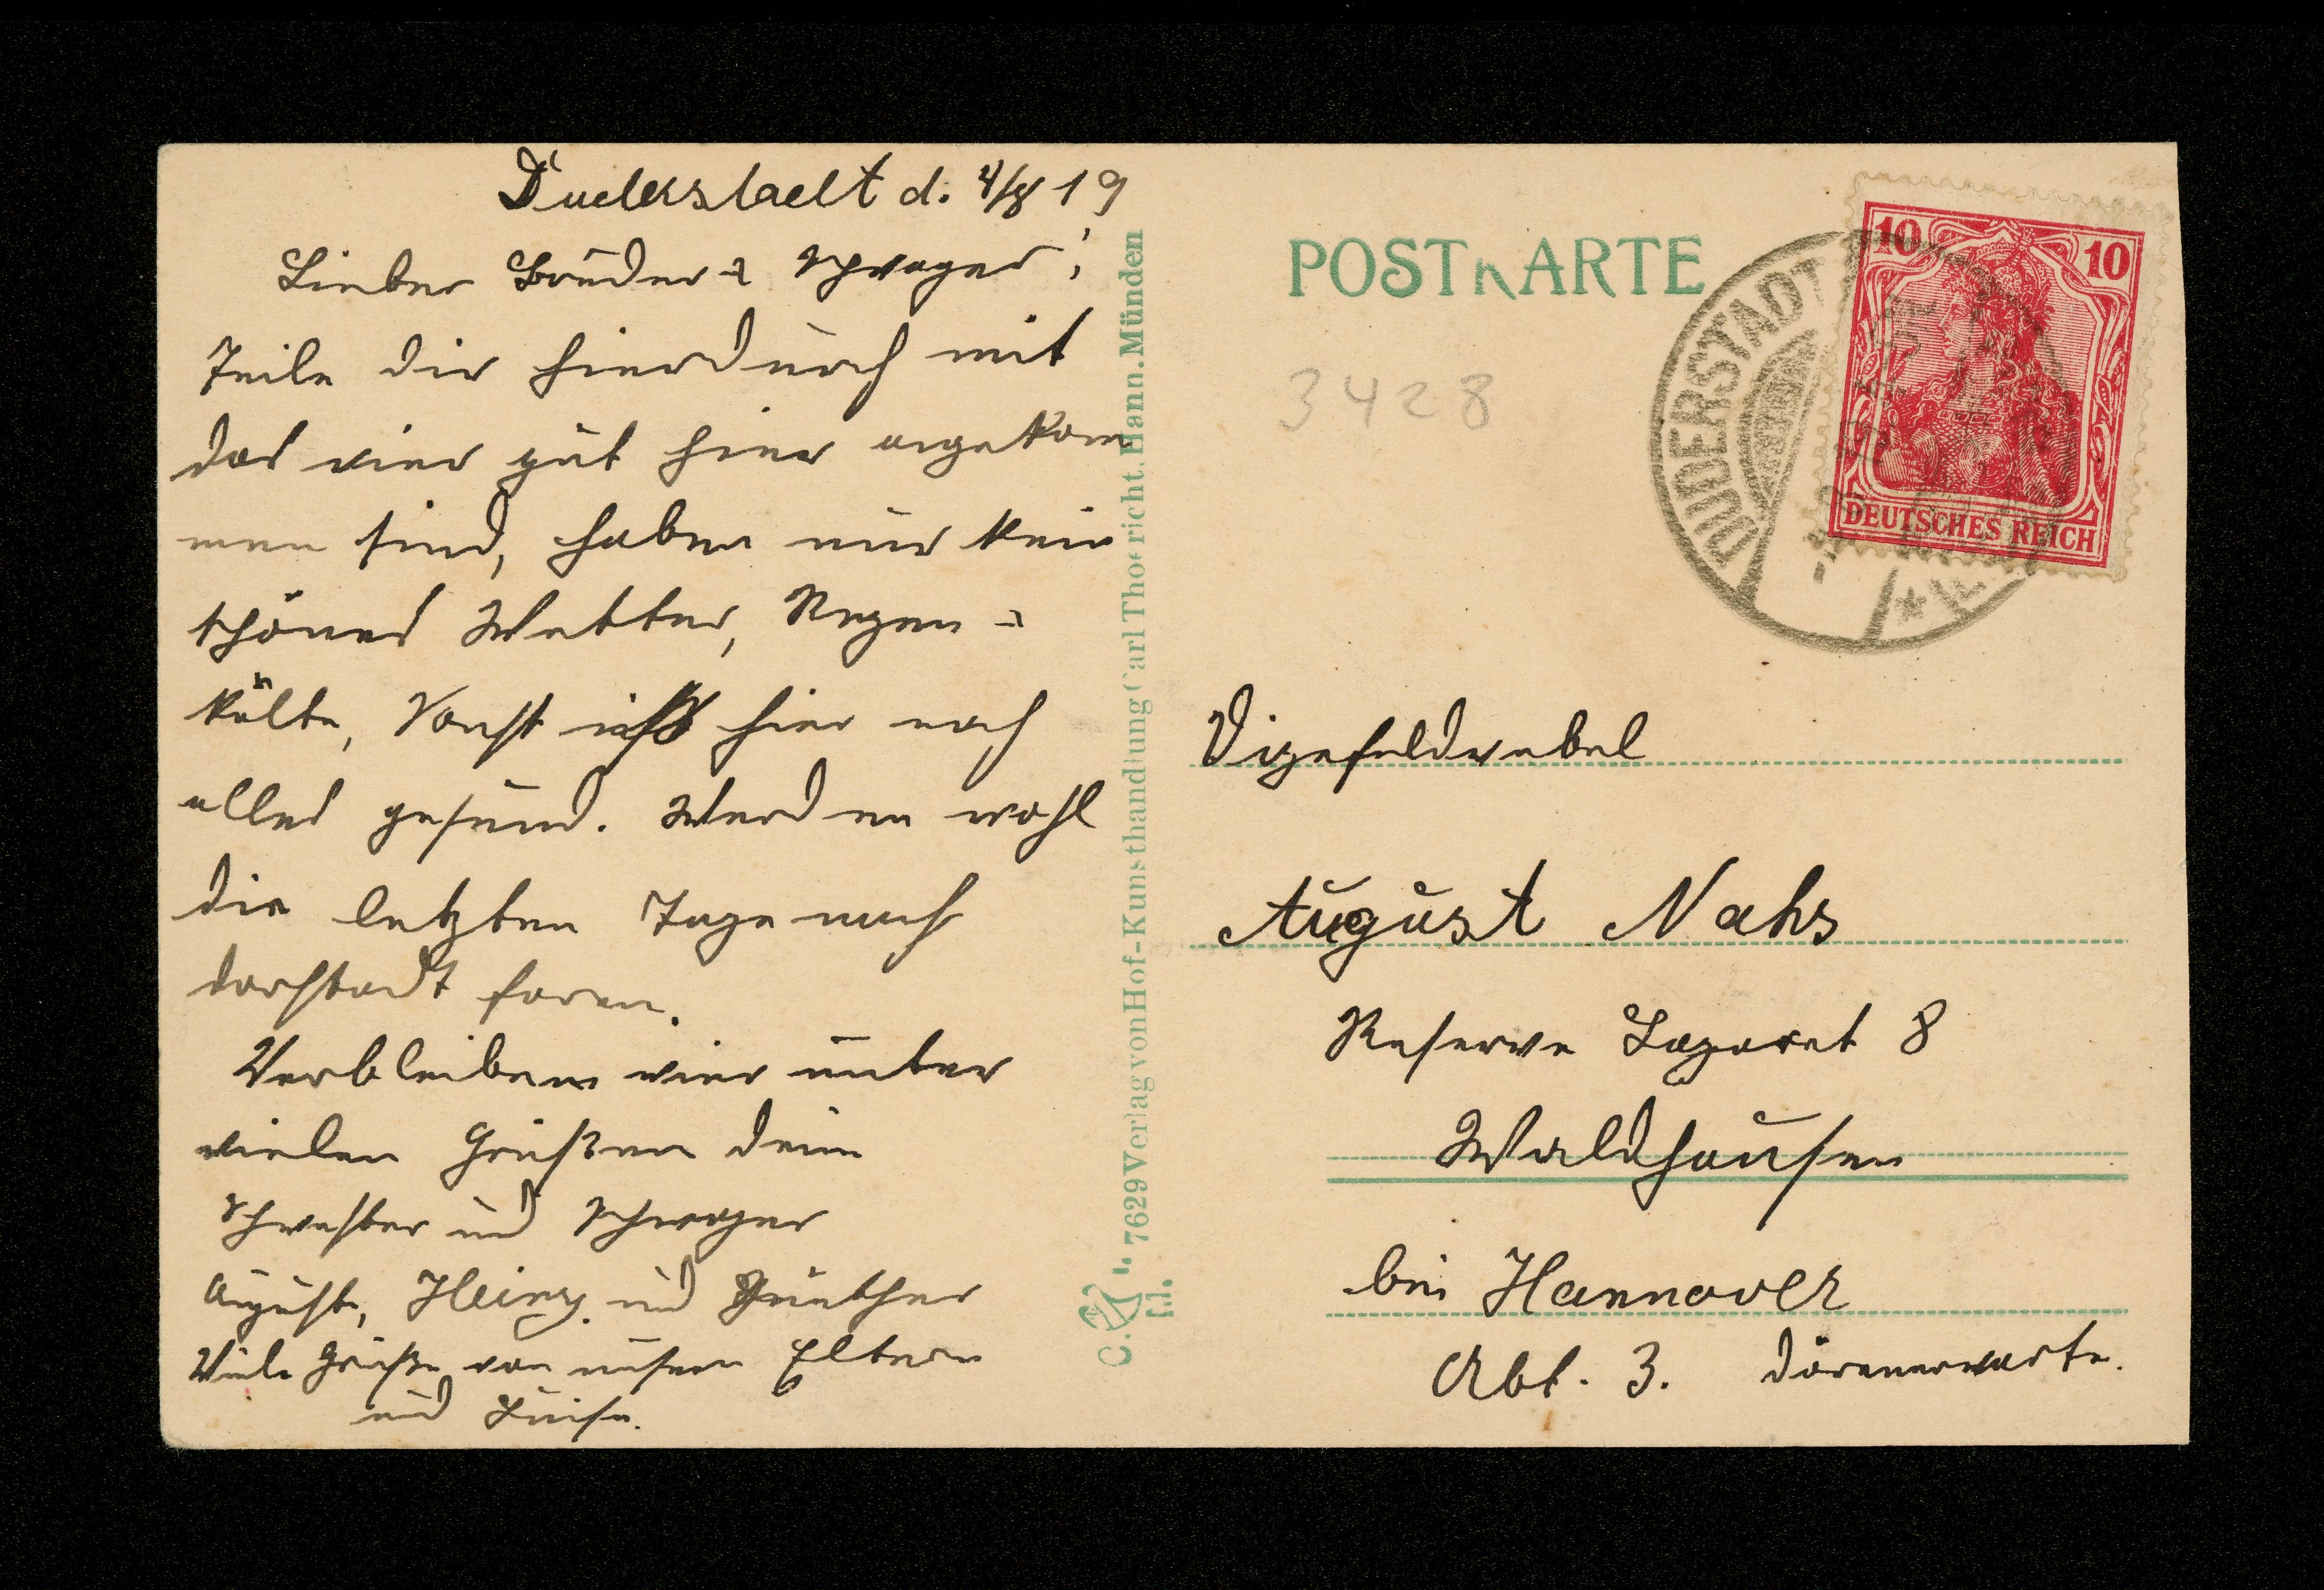 Duderstadt d. 4/8 19
Lieber Bruder u Schwager!
Teile dir hierdurch mit
das wier gut hier angekom
men sind, haben nur kein
schönes Wetter, Regen u
kälte, Sonst ist hier noch
alles gesund. Werden wohl
die letzten Tage nach
dorstadt faren.
Verbleiben wier unter
vielen Grüßen dein
Schwester und Schwager
August, Heinz und Günther
Viele Grüße von unsern Eltern
und Luise.
C. 7629 Verlag von Hof-Kunsthandlung Carl Thoericht, Hann. Münden
POSTKARTE
3428
DUDERSTADT
10 10
DEUTSCHES REICH
Vizefeldwebel
August Nahs
Reserve Lazaret 8
Waldhausen
bei Hannover
Abt. 3. dörenerwarte.